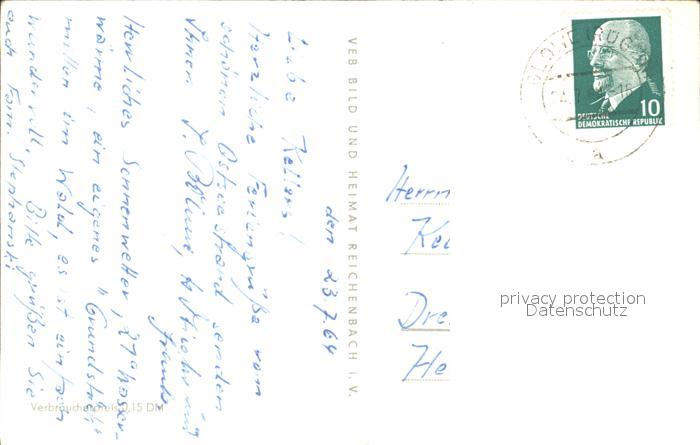 den 23.7.64
Liebe Kellers!
Herzliche Feriengrüße vom
schönen Ostseestrand senden
Ihnen
Herrliches Sonnenwetter, 21° Wasser-
wärme, ein eigenes "Grundstück"
mitten im Wald, es ist einfach
wundervoll. Bitte grüßen Sie
auch Fam.
VEB BILD UND HEIMAT REICHENBACH i. V.
Verbraucherpreis 0,15 DM
DEUTSCHE
DEMOKRATISCHE REPUBLIK
10
a
Herrn
Kel
Dre
He
privacy protection
Datenschutz